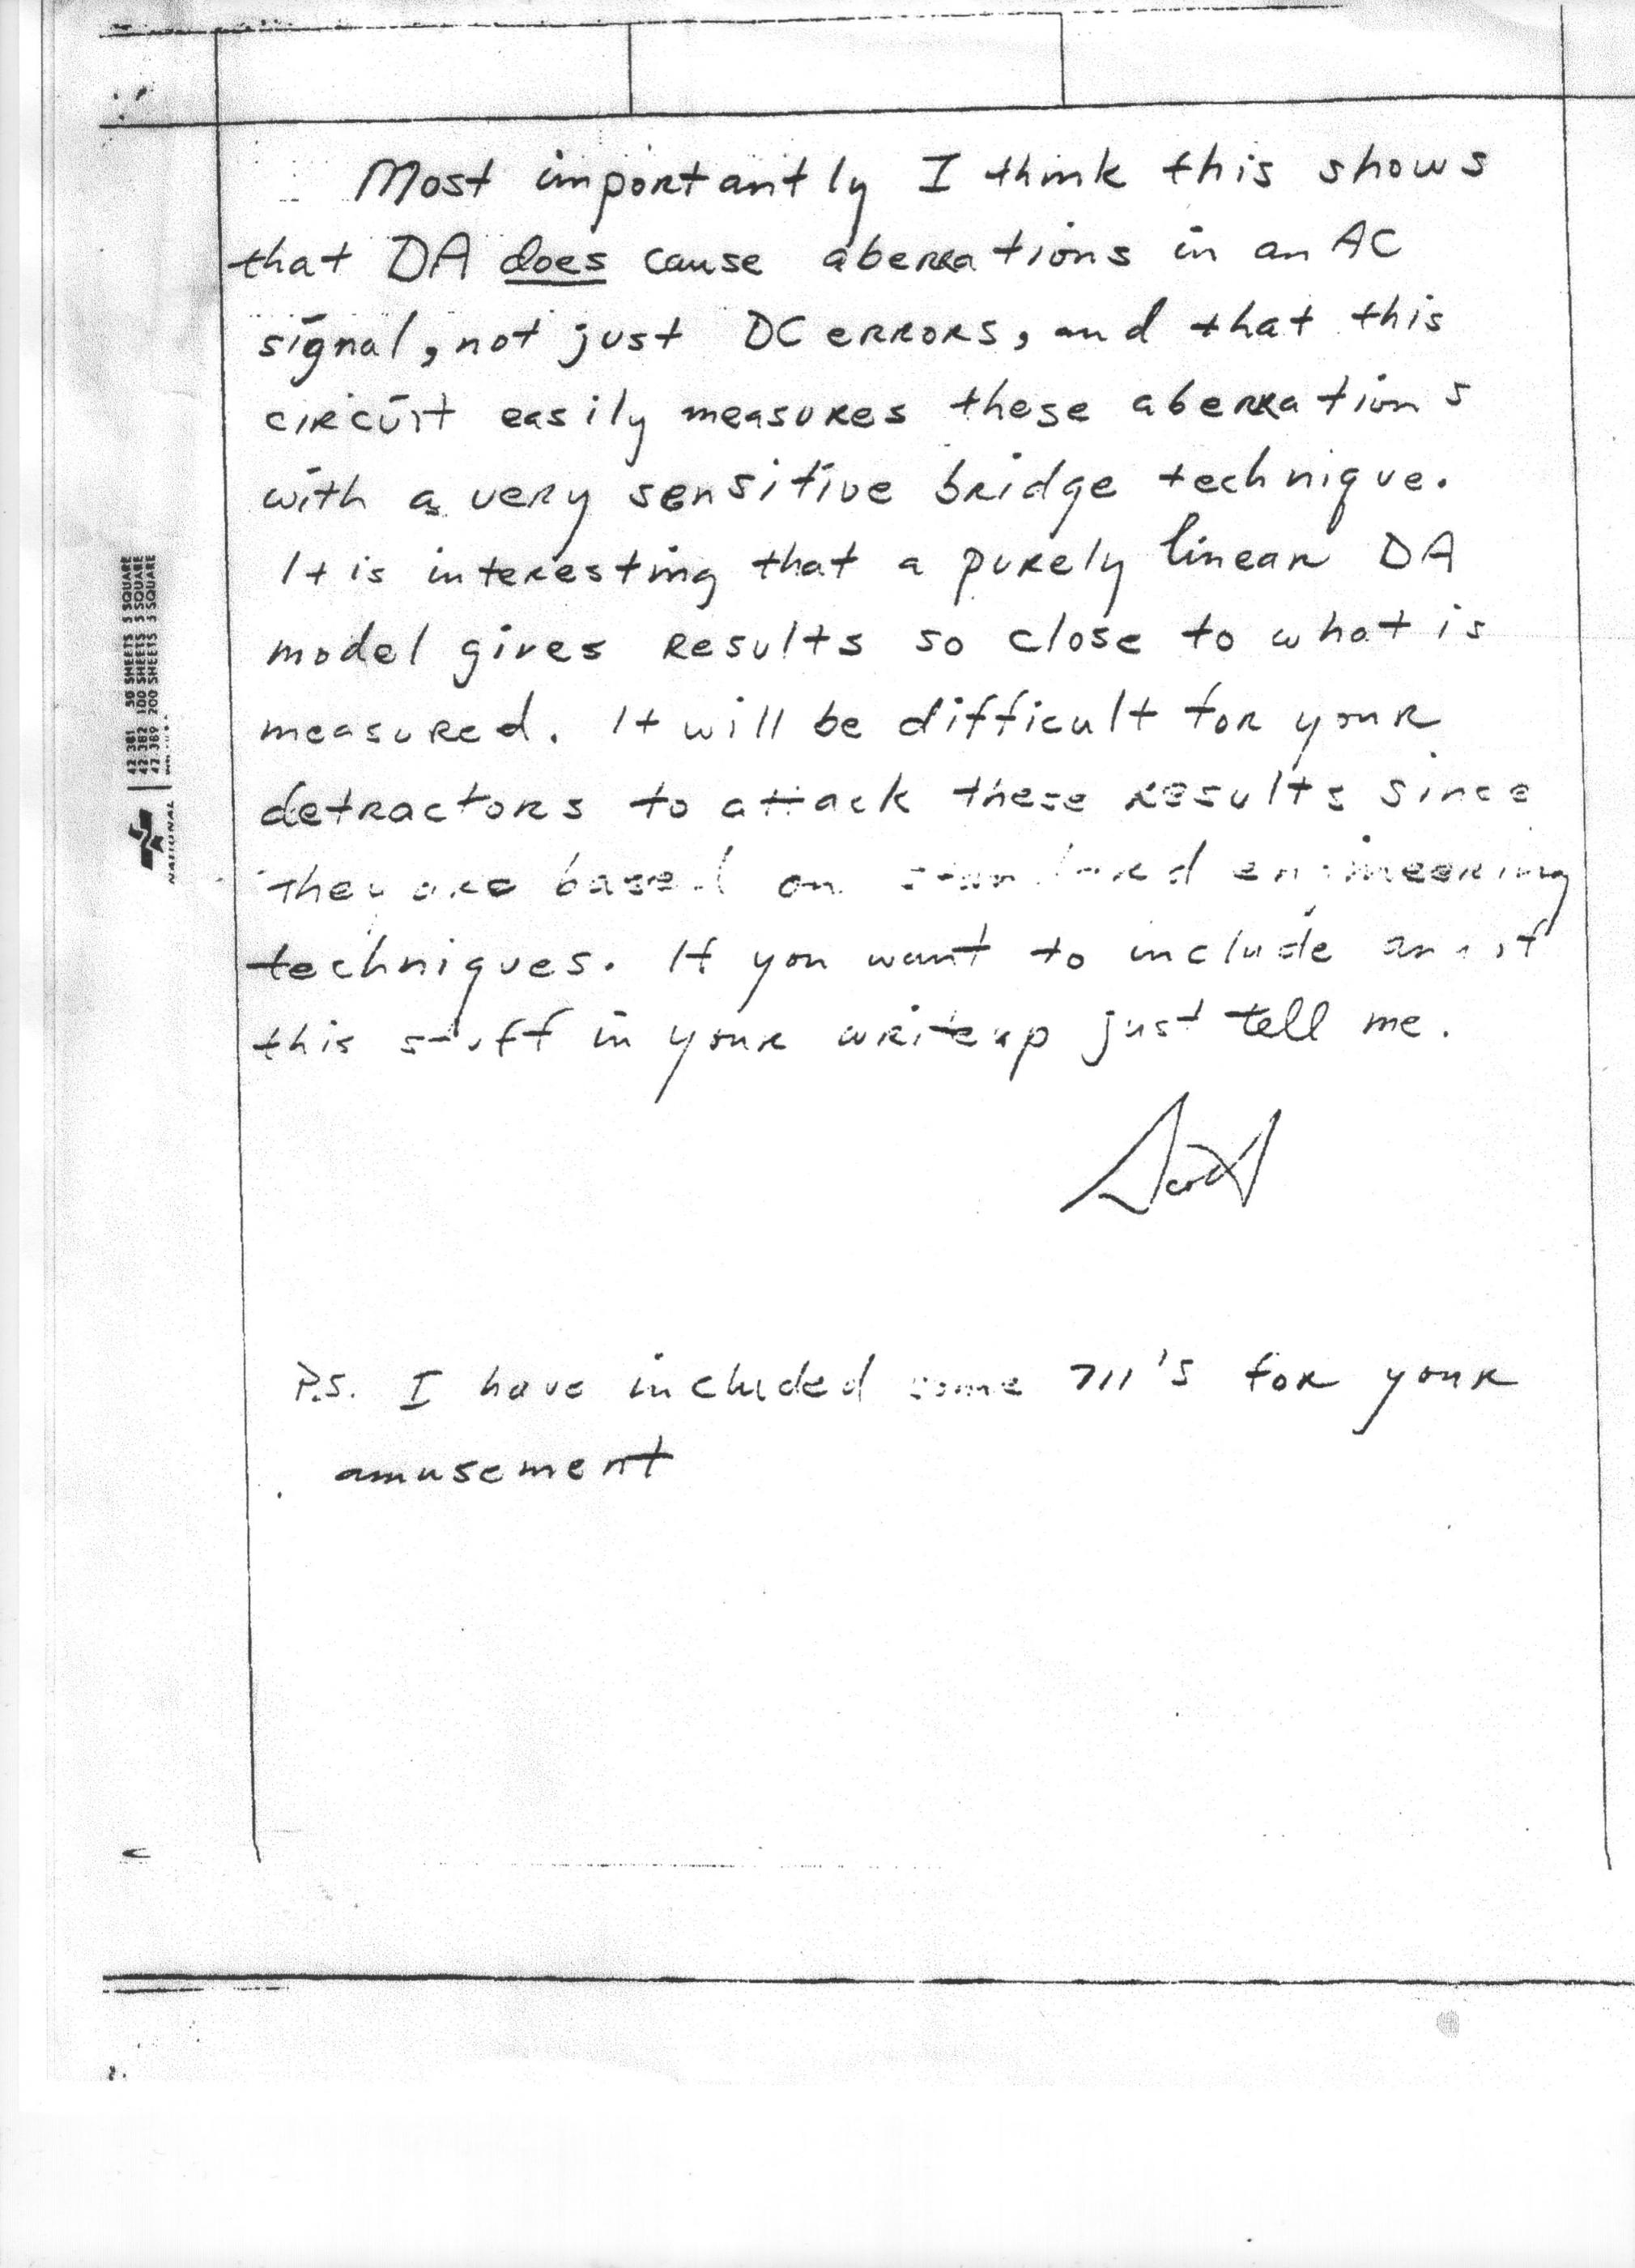 Most importantly I think this shows
that DA does cause aberrations in an AC
signal, not just DC errors, and that this
circuit easily measures these aberrations
with a very sensitive bridge technique.
It is interesting that a purely linear DA
model gives results so close to what is
measured. It will be difficult for your
detractors to attack these results since
they are based on standard engineering
techniques. If you want to include any of
this stuff in your writeup just tell me.
P.S. I have included some 711's for your
amusement
42-381 50 SHEETS 5 SQUARE
42-382 100 SHEETS 5 SQUARE
42-389 200 SHEETS 5 SQUARE
NATIONAL